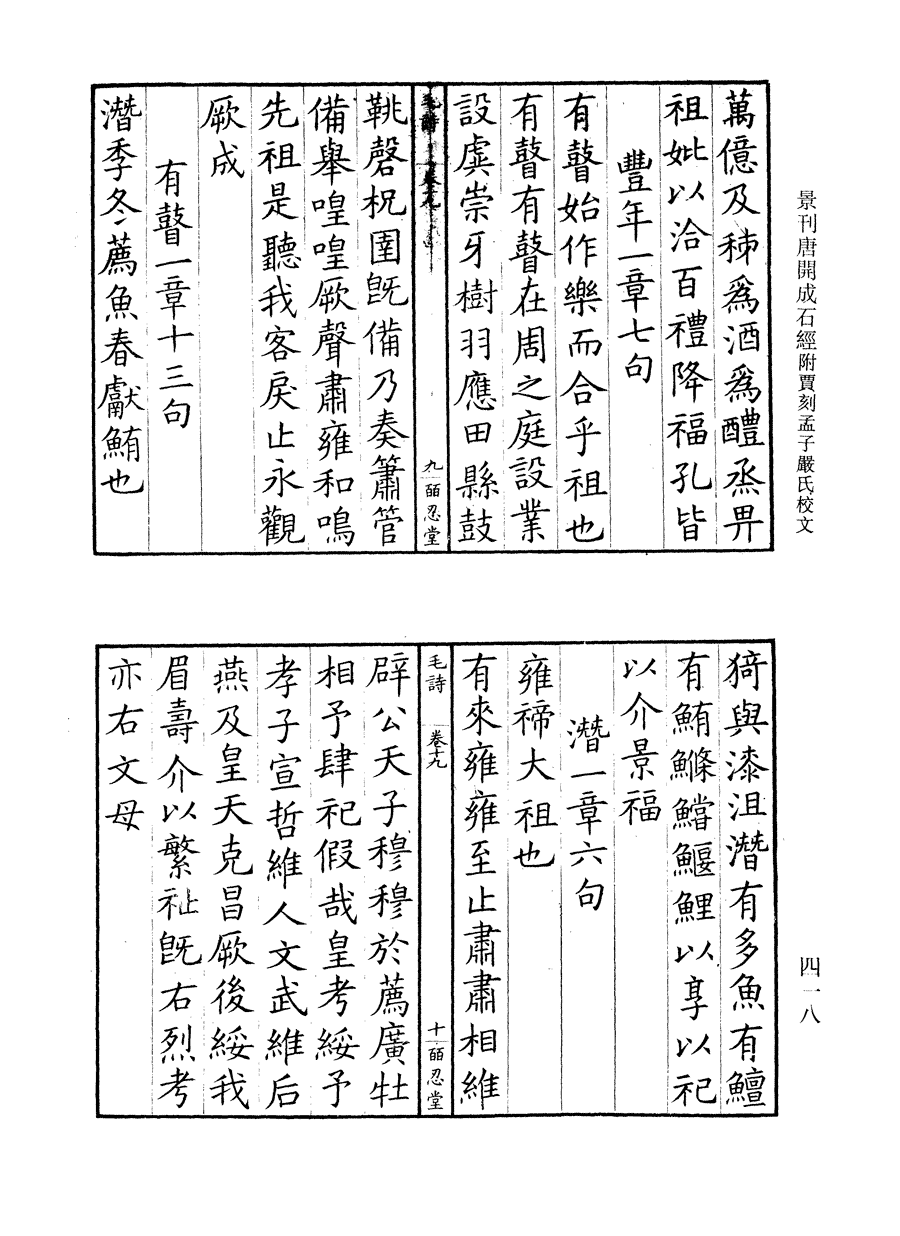 景刊唐開成石經附賈刻孟子嚴氏校文
萬億及秭爲酒爲醴烝畀
祖妣以洽百禮降福孔皆
豐年一章七句
有瞽始作樂而合乎祖也
有瞽有瞽在周之庭設業
設虡崇牙樹羽應田縣鼓
毛詩 卷十九 九 皕忍堂
鞉磬柷圉旣備乃奏簫管
備舉喤喤厥聲肅雍和鳴
先祖是聽我客戾止永觀
厥成
有瞽一章十三句
潛季冬薦魚春獻鮪也
四一八
猗與漆沮潛有多魚有鱣
有鮪鰷鱨鰋鯉以享以祀
以介景福
潛一章六句
雍禘大祖也
有來雍雍至止肅肅相維
毛詩 卷十九 十 皕忍堂
辟公天子穆穆於薦廣牡
相予肆祀假哉皇考綏予
孝子宣哲維人文武維后
燕及皇天克昌厥後綏我
眉壽介以繁祉旣右烈考
亦右文母